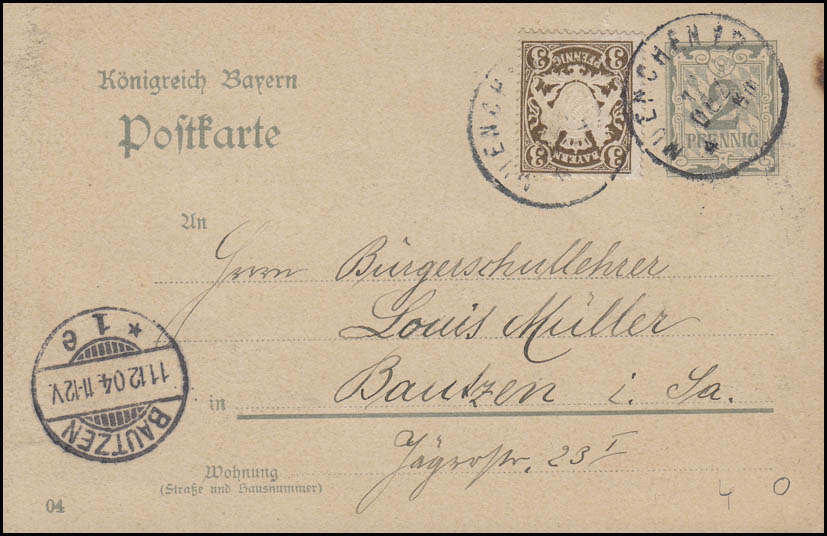 Königreich Bayern
Postkarte
3 3
PFENNIG
BAYERN
3 3
MUENCHEN
DEZ
2
PFENNIG
An
Herrn Bürgerschullehrer
Louis Müller
in Bautzen i. Sa.
Jägerstr. 23 I
Wohnung
(Straße und Hausnummer)
04
BAUTZEN
11.12.04. 11-12V.
* 1 e
4 0